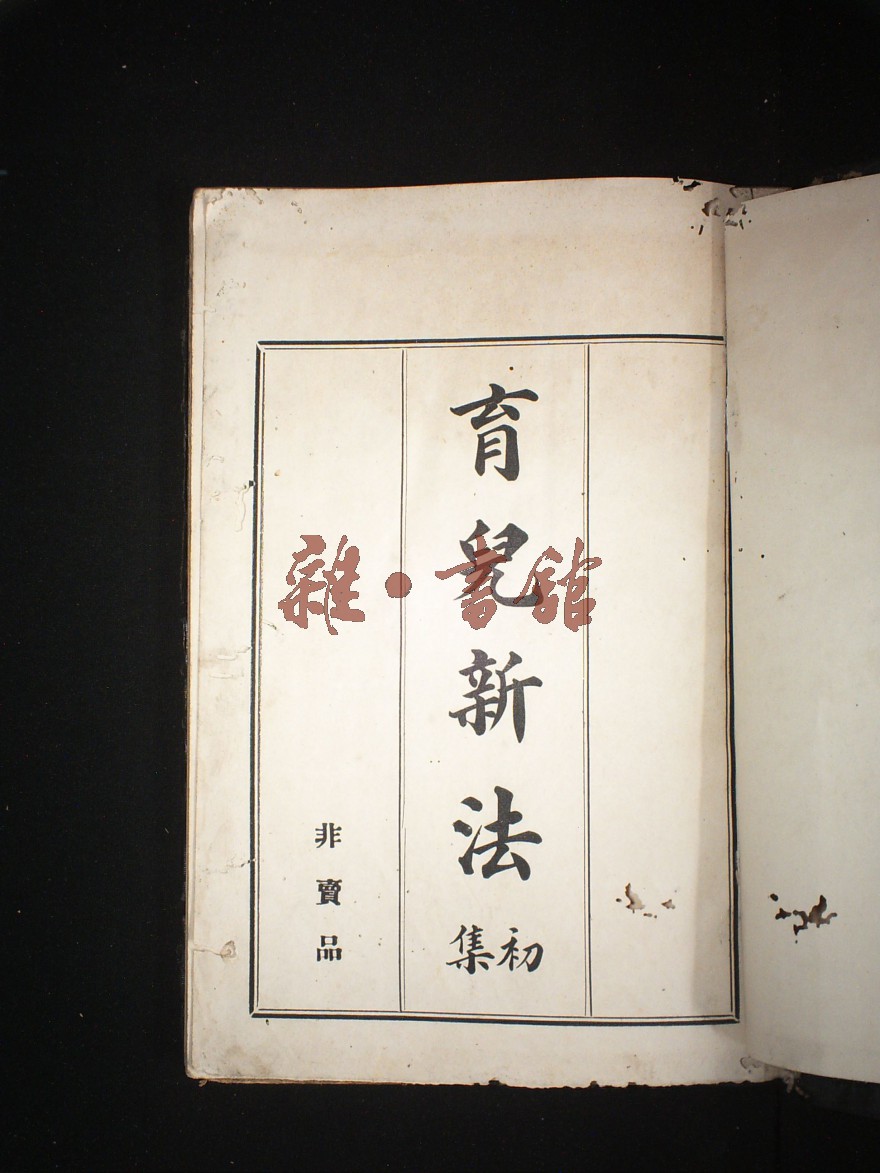 育兒新法
初集
非賣品
雜·書館